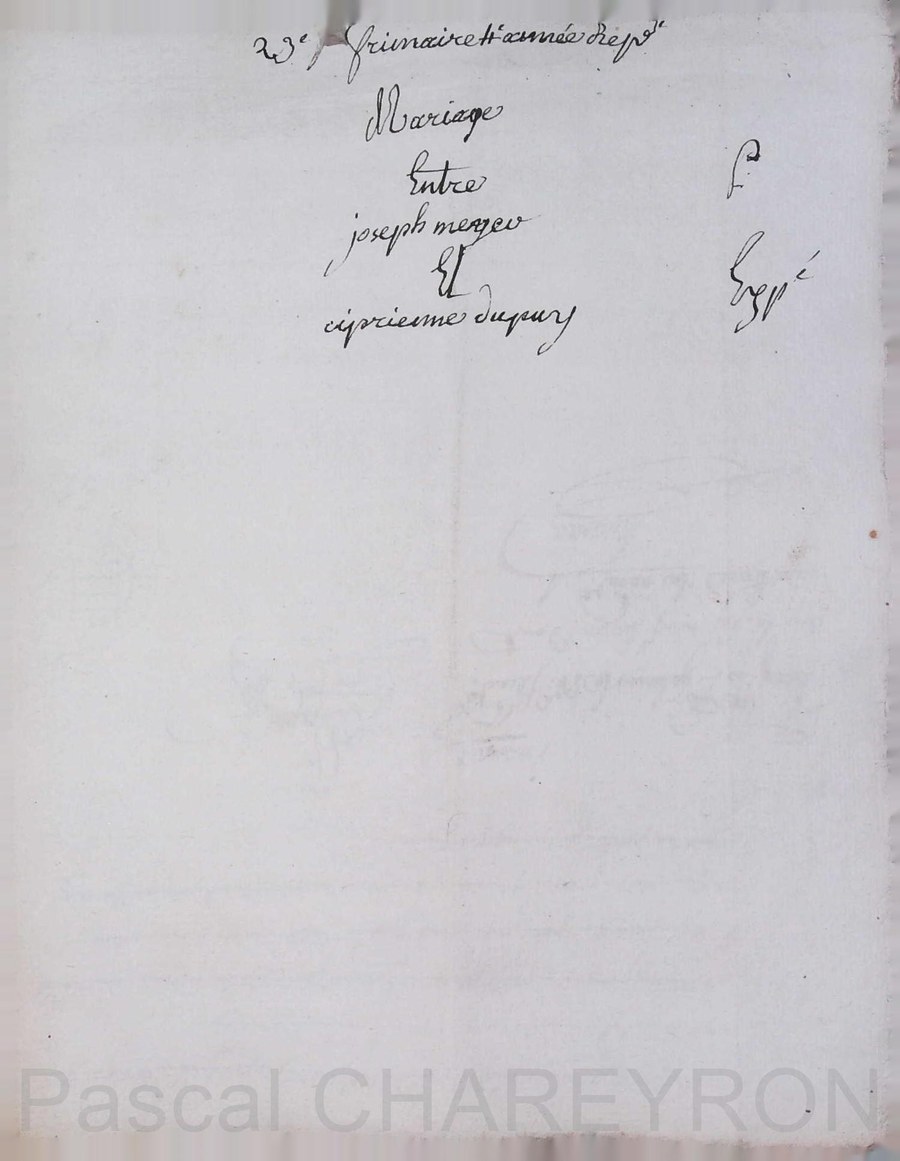 23e frimaire 4e année Répe
Mariage
Entre
joseph meyer
Et
ciprienne dupuy
Expé
Pascal CHAREYRON